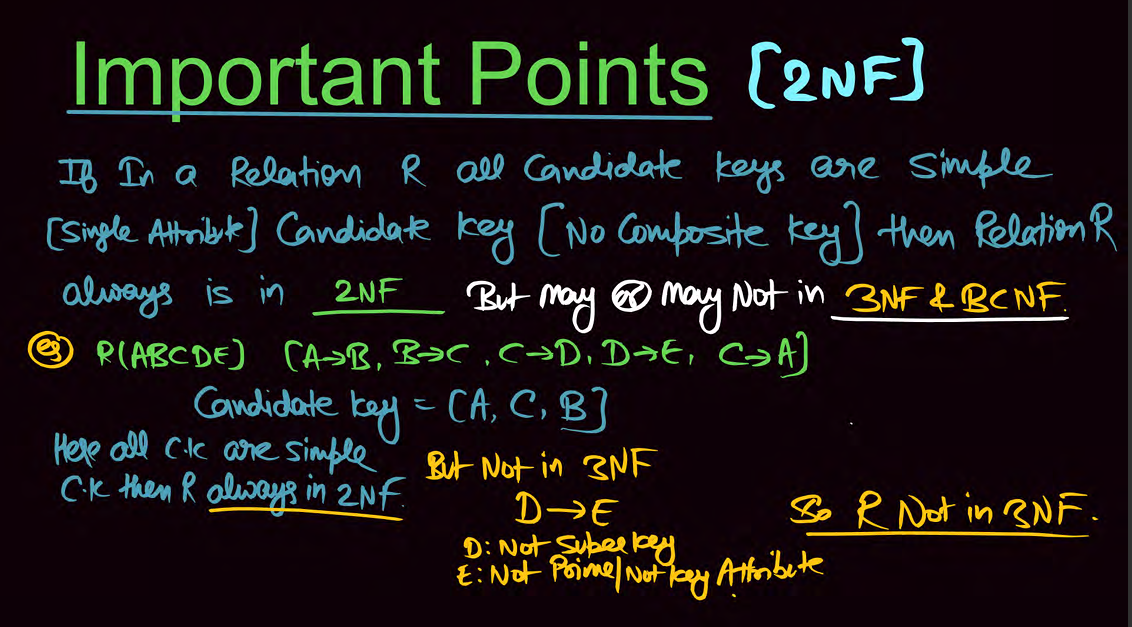 Important Points [2NF]
If In a Relation R all Candidate keys are Simple
[Single Attribute] Candidate key [No Composite key] then Relation R
always is in 2NF But may or may Not in 3NF & BCNF.
eg R(ABCDE) [A→B, B→C, C→D, D→E, C→A]
Candidate key = [A, C, B]
Here all C.K are simple
C.K then R always in 2NF.
But Not in 3NF
D→E
So R Not in 3NF.
D: Not Super key
E: Not Prime/Not key Attribute